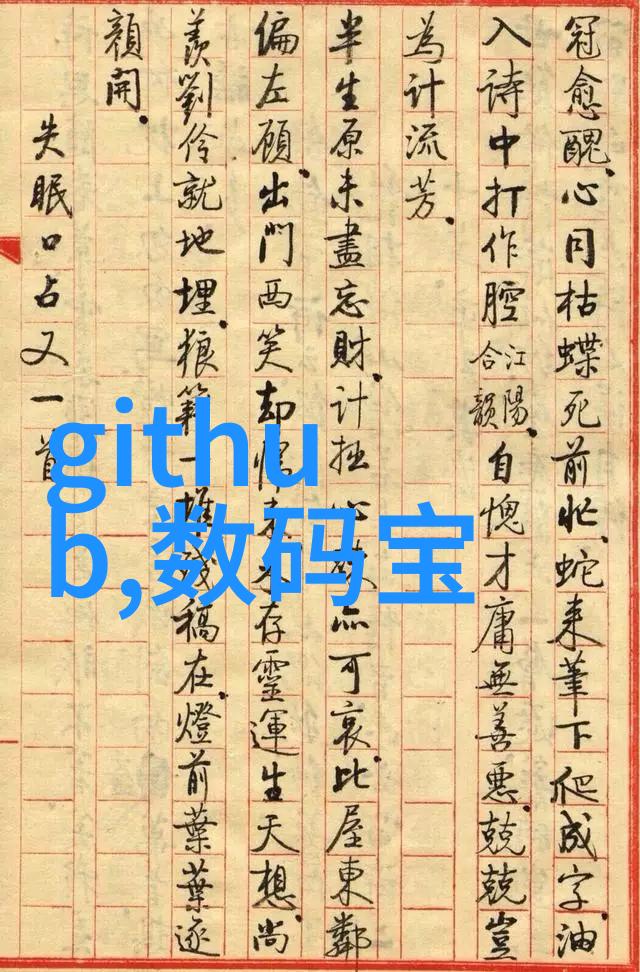 冠愈醜。心同枯蝶死前忙。蛇来筆下爬成字。油
入詩中打作腔江陽合韻。自愧才庸無善惡。兢兢豈
為計流芳。
半生原未盡忘財。計拙心亦可哀。比屋東鄰
偏左顧。出門西笑却来不存靈運生天想。尚
羨劉伶就地埋。狼籍一堆残稿在。燈前葉葉逐
顏開。
失眠口占又一首
github,数码宝